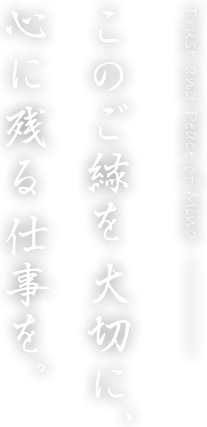 Trust and Peace of Mind
このご縁を大切に、
心に残る仕事を。